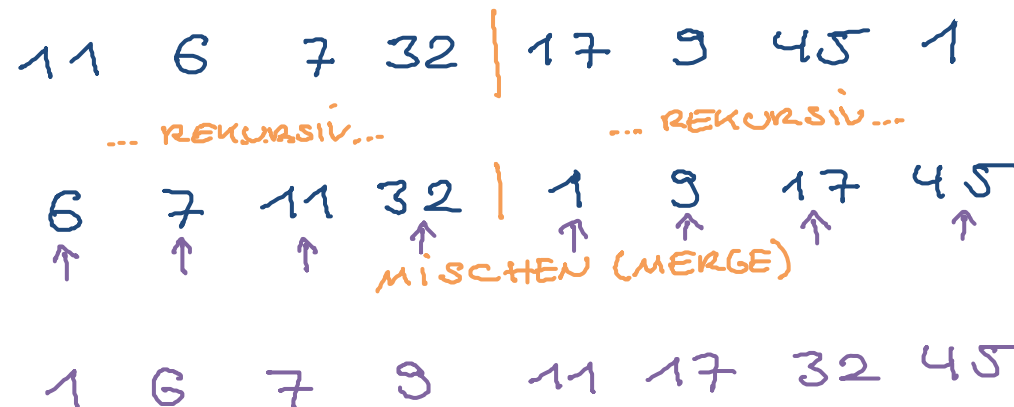 11 6 7 32 | 17 9 45 1
... REKURSIV... ... REKURSIV...
6 7 11 32 | 1 9 17 45
↑ ↑ ↑ ↑ ↑ ↑ ↑ ↑
MISCHEN (MERGE)
1 6 7 9 11 17 32 45